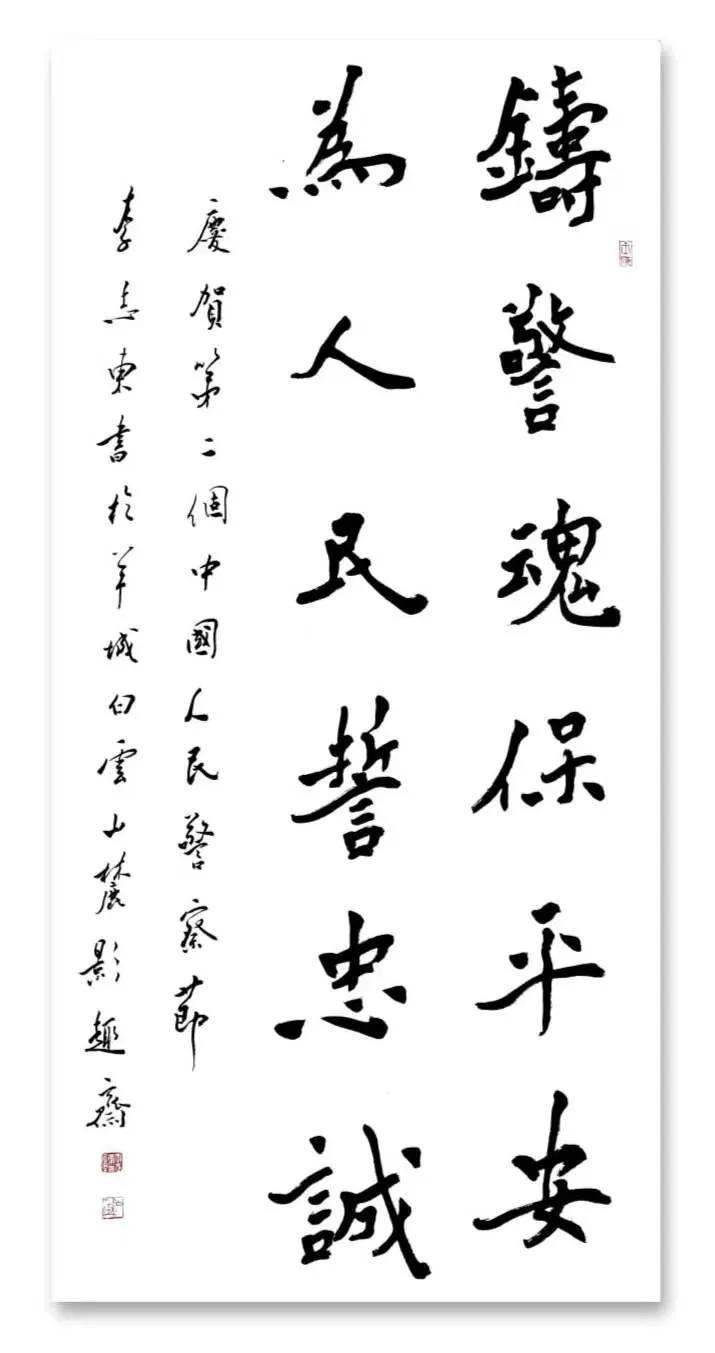 鑄警魂保平安
為人民誓忠誠
慶賀第二個中國人民警察節
李志東書於羊城白雲山麓影趣齋